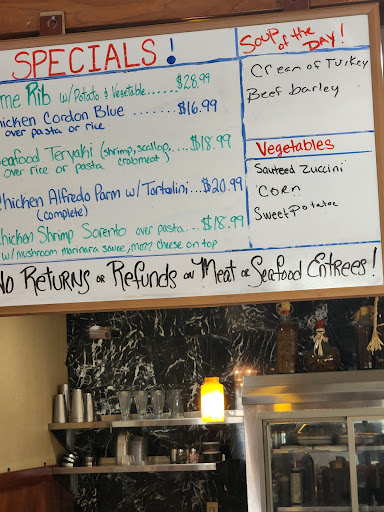 SPECIALS!
me Rib w/Potato & Vegetable...... $28.99
hicken Cordon Blue ....... $16.99
over pasta or rice
eafood Teryaki (shrimp, scallop, .... $18.99
over rice or pasta crabmeat)
Chicken Alfredo Parm w/Tortalini... $20.99
(complete)
hicken Shrimp Sorento over pasta... $18.99
w/ mushroom marinara sauce, mozz cheese on top
Soup of the DAY!
Cream of Turkey
Beef barley
Vegetables
Sauteed Zuccini
Corn
Sweet Potatoe
No Returns or Refunds on Meat or Seafood Entrees!